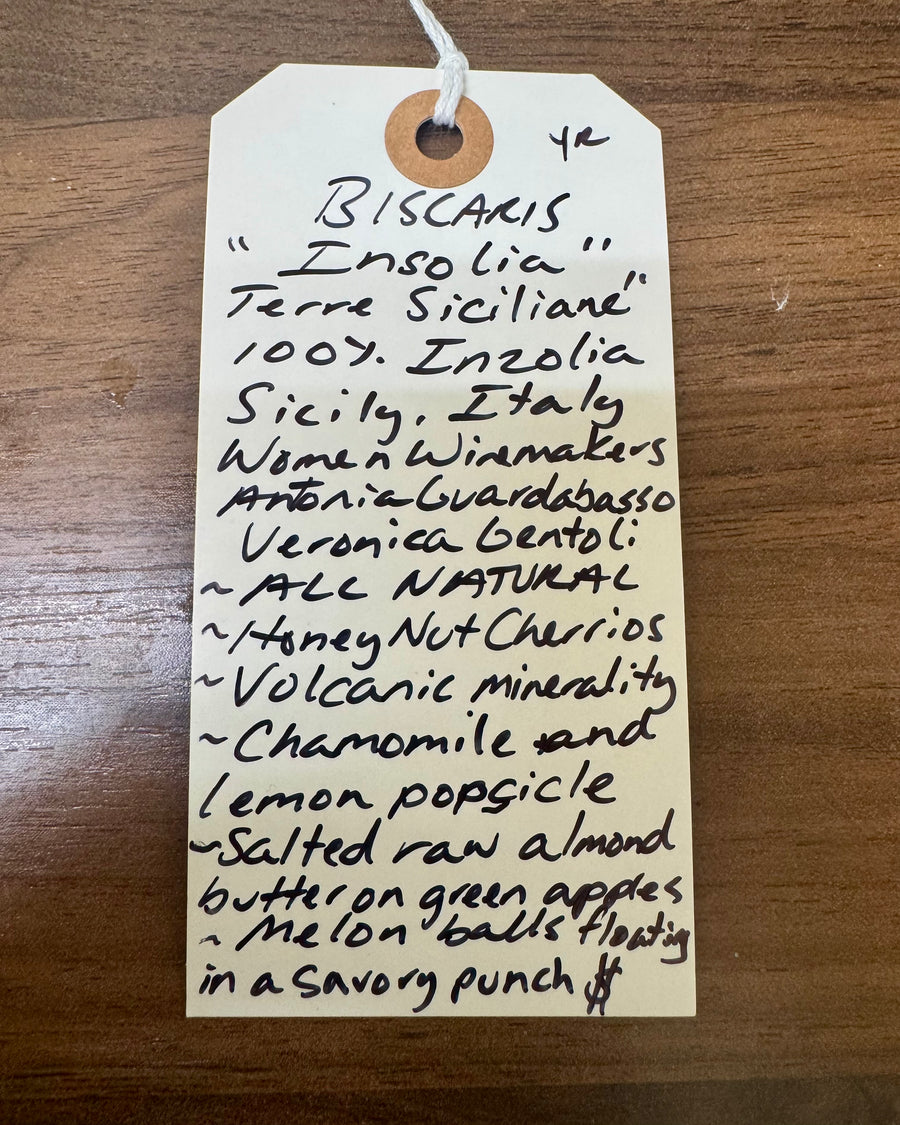 YR
BISCARIS
"Insolia"
Terre Siciliane"
100% Inzolia
Sicily, Italy
Women Winemakers
Antonia Guardabasso
Veronica Gentoli
~ALL NATURAL
~Honey Nut Cherrios
~Volcanic minerality
~Chamomile and
lemon popsicle
~Salted raw almond
butter on green apples
~Melon balls floating
in a savory punch $